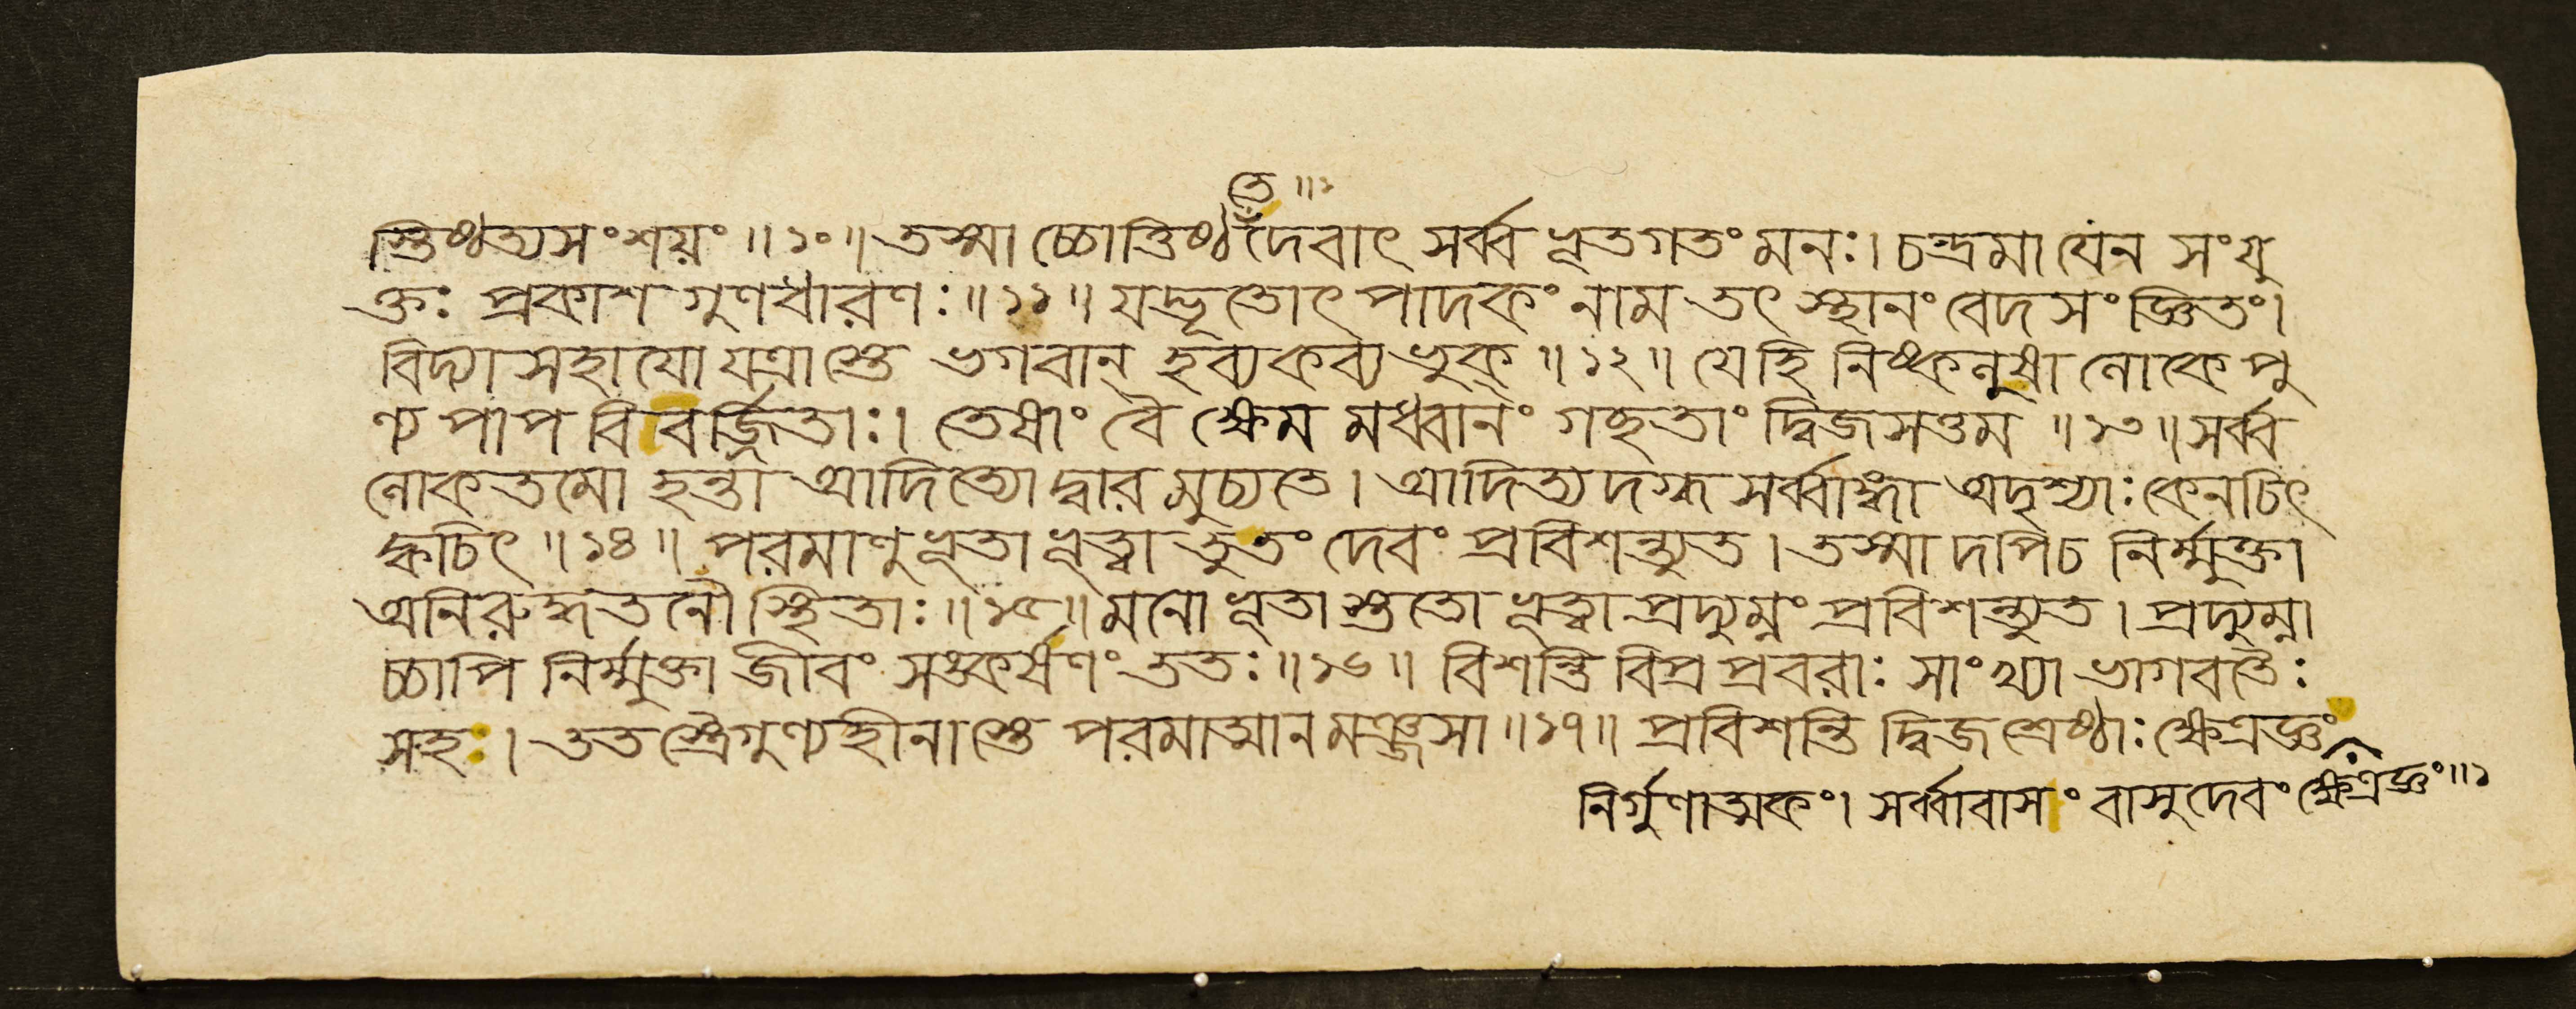 তে ॥১
স্তিষ্ঠত্যসংশয়ং ॥১০॥ তস্মাচ্চোত্তিষ্ঠদেবাৎ সর্ব্বভূতগতং মনঃ। চন্দ্রমা যেন সংযু
ক্তঃ প্রকাশগুণধারণঃ ॥১১॥ যদ্ভূতোৎপাদকং নাম তৎ স্থানং বেদসংজ্ঞিতং।
বিদ্যাসহাযো যত্রাস্তে ভগবান্ হব্যকব্যভুক্ ॥১২॥ যেহি নিষ্কলুষা লোকে পু
ণ্যপাপবিবর্জ্জিতাঃ। তেষাং বৈ ক্ষেমমধ্বানং গচ্ছতাং দ্বিজসত্তম ॥১৩॥ সর্ব্ব
লোকতমোহন্তা আদিত্যোদ্বারমুচ্যতে। আদিত্যদগ্ধসর্ব্বাঙ্গা অদৃশ্যাঃ কেনচিৎ
ক্বচিৎ ॥১৪॥ পরমাণুভূতাভূত্বা তুতং দেবং প্রবিশন্ত্যুত। তস্মাদপিচ নির্ম্মুক্তা
অনিরুদ্ধতনৌ স্থিতাঃ ॥১৫॥ মনোভূতাস্ততো ভূত্বা প্রদ্যুম্নং প্রবিশন্ত্যুত। প্রদ্যুম্না
চ্চাপি নির্ম্মুক্তা জীবং সঙ্কর্ষণং ততঃ ॥১৬॥ বিশন্তি বিপ্রপ্রবরাঃ সাংখ্যা ভাগবতৈঃ
সহঃ। ততস্ত্রৈগুণ্যহীনাস্তে পরমাত্মানমঞ্জসা ॥১৭॥ প্রবিশন্তি দ্বিজশ্রেষ্ঠাঃ ক্ষেত্রজ্ঞং
নির্গুণাত্মকং। সর্ব্বাবাসং বাসুদেবং ক্ষেত্রজ্ঞং ॥১